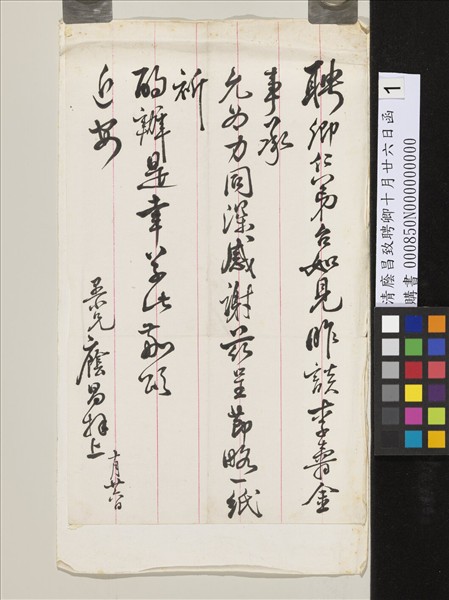 聘卿仁弟台如見昨談李壽金
事承
允為力同深感謝茲呈節略一紙
祈
酌辦是幸草此敬頌
近安
愚兄廕昌拜上
十月廿六日
1
清廕昌致聘卿十月廿六日函
購書 000850N000000000